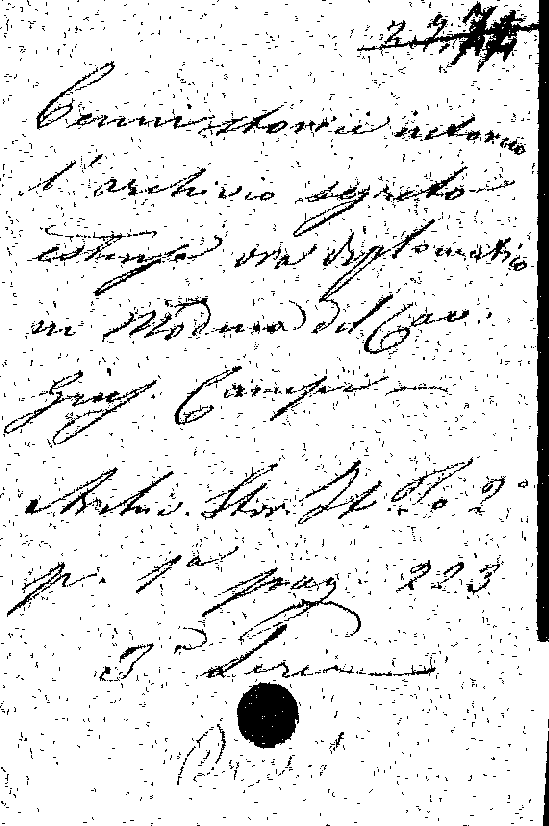 Cenni storici intorno
l'archivio segreto
estense ora diplomatico
in Modena del Cav.
Gius. Campi —
Archiv. Stor. It. To 2°
p. 1a pag. 223
3a Serie